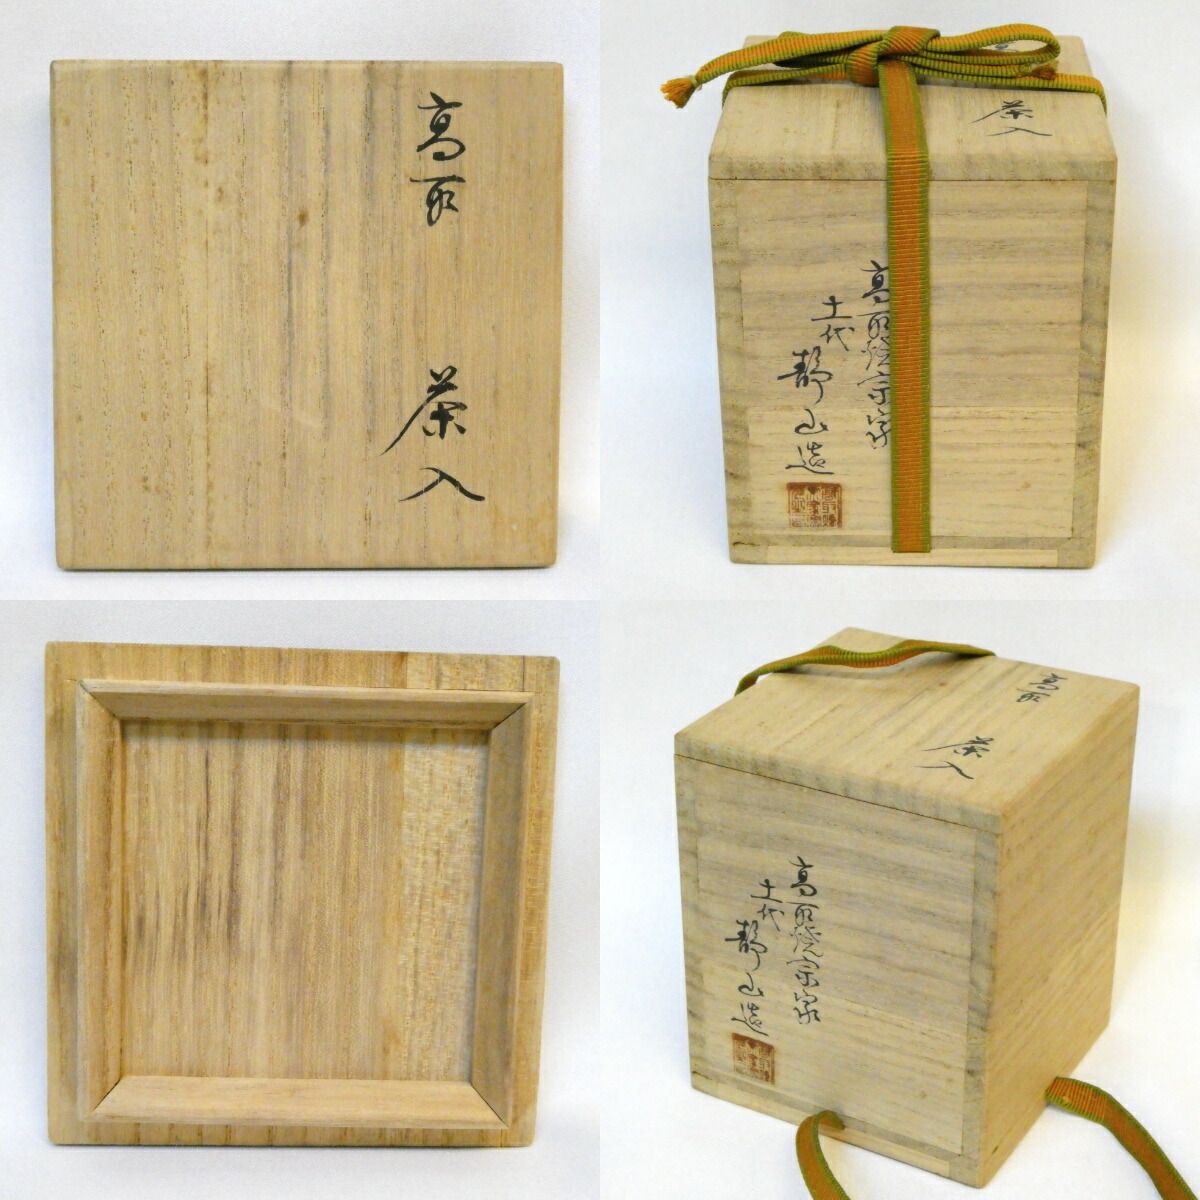 高取 茶入
茶入
高取焼宗家
十一代 靜山造
高取 茶入
高取焼宗家
十一代 靜山造